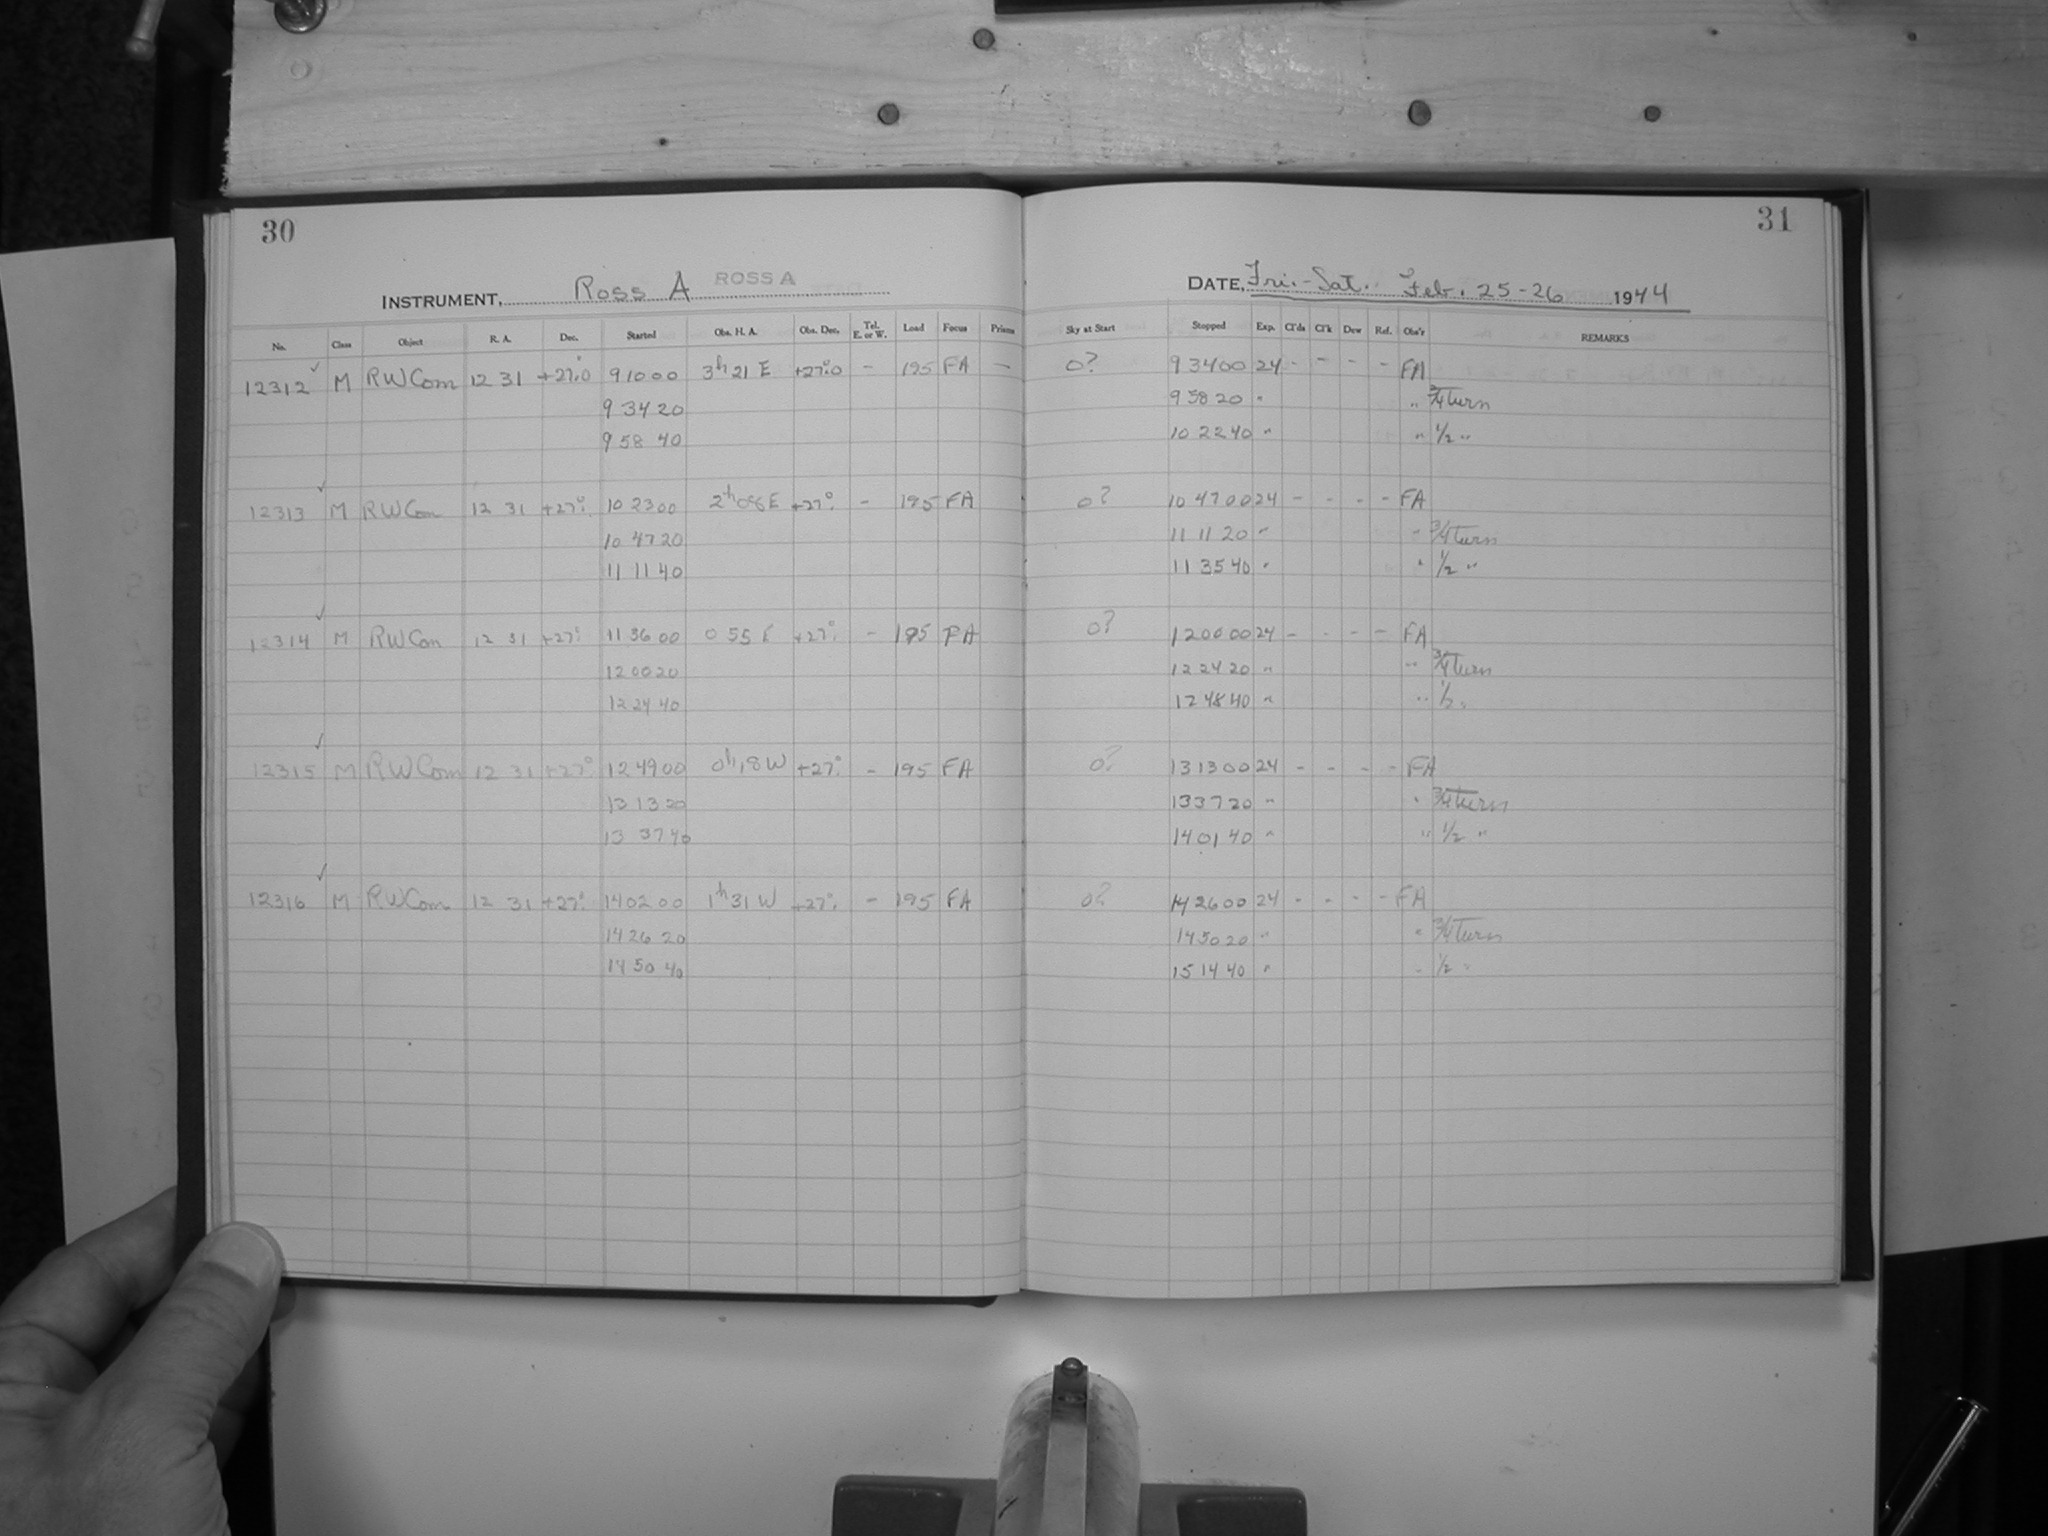 30
31
INSTRUMENT, Ross A ROSS A
DATE, Fri.-Sat. Feb. 25-26 1944
No. Class Object R. A. Dec. Started Obs. H. A. Obs. Dec. Tel. E. or W. Load Focus Prisms Sky at Start Stopped Exp. Cl'ds Cl'k Dew Ref. Obs'r REMARKS
12312 ✓ M RWCom 12 31 +27.°0 9 10 00 3h 21 E +27.°0 - 195 FA - 0? 9 34 00 24 - - - - FA
9 34 20 9 58 20 " " 3/4 turn
9 58 40 10 22 40 " " 1/2 "
12313 ✓ M RWCom 12 31 +27.° 10 23 00 2h 08 E +27.° - 195 FA 0? 10 47 00 24 - - - - FA
10 47 20 11 11 20 " " 3/4 turn
11 11 40 11 35 40 " " 1/2 "
12314 ✓ M RWCom 12 31 +27.° 11 36 00 0 55 E +27.° - 195 FA 0? 12 00 00 24 - - - - FA
12 00 20 12 24 20 " " 3/4 turn
12 24 40 12 48 40 " " 1/2 "
12315 ✓ M RWCom 12 31 +27° 12 49 00 0h 18 W +27.° - 195 FA 0? 13 13 00 24 - - - - FA
13 13 20 13 37 20 " " 3/4 turn
13 37 40 14 01 40 " " 1/2 "
12316 ✓ M RWCom 12 31 +27.° 14 02 00 1h 31 W +27.° - 195 FA 0? 14 26 00 24 - - - - FA
14 26 20 14 50 20 " " 3/4 turn
14 50 40 15 14 40 " " 1/2 "